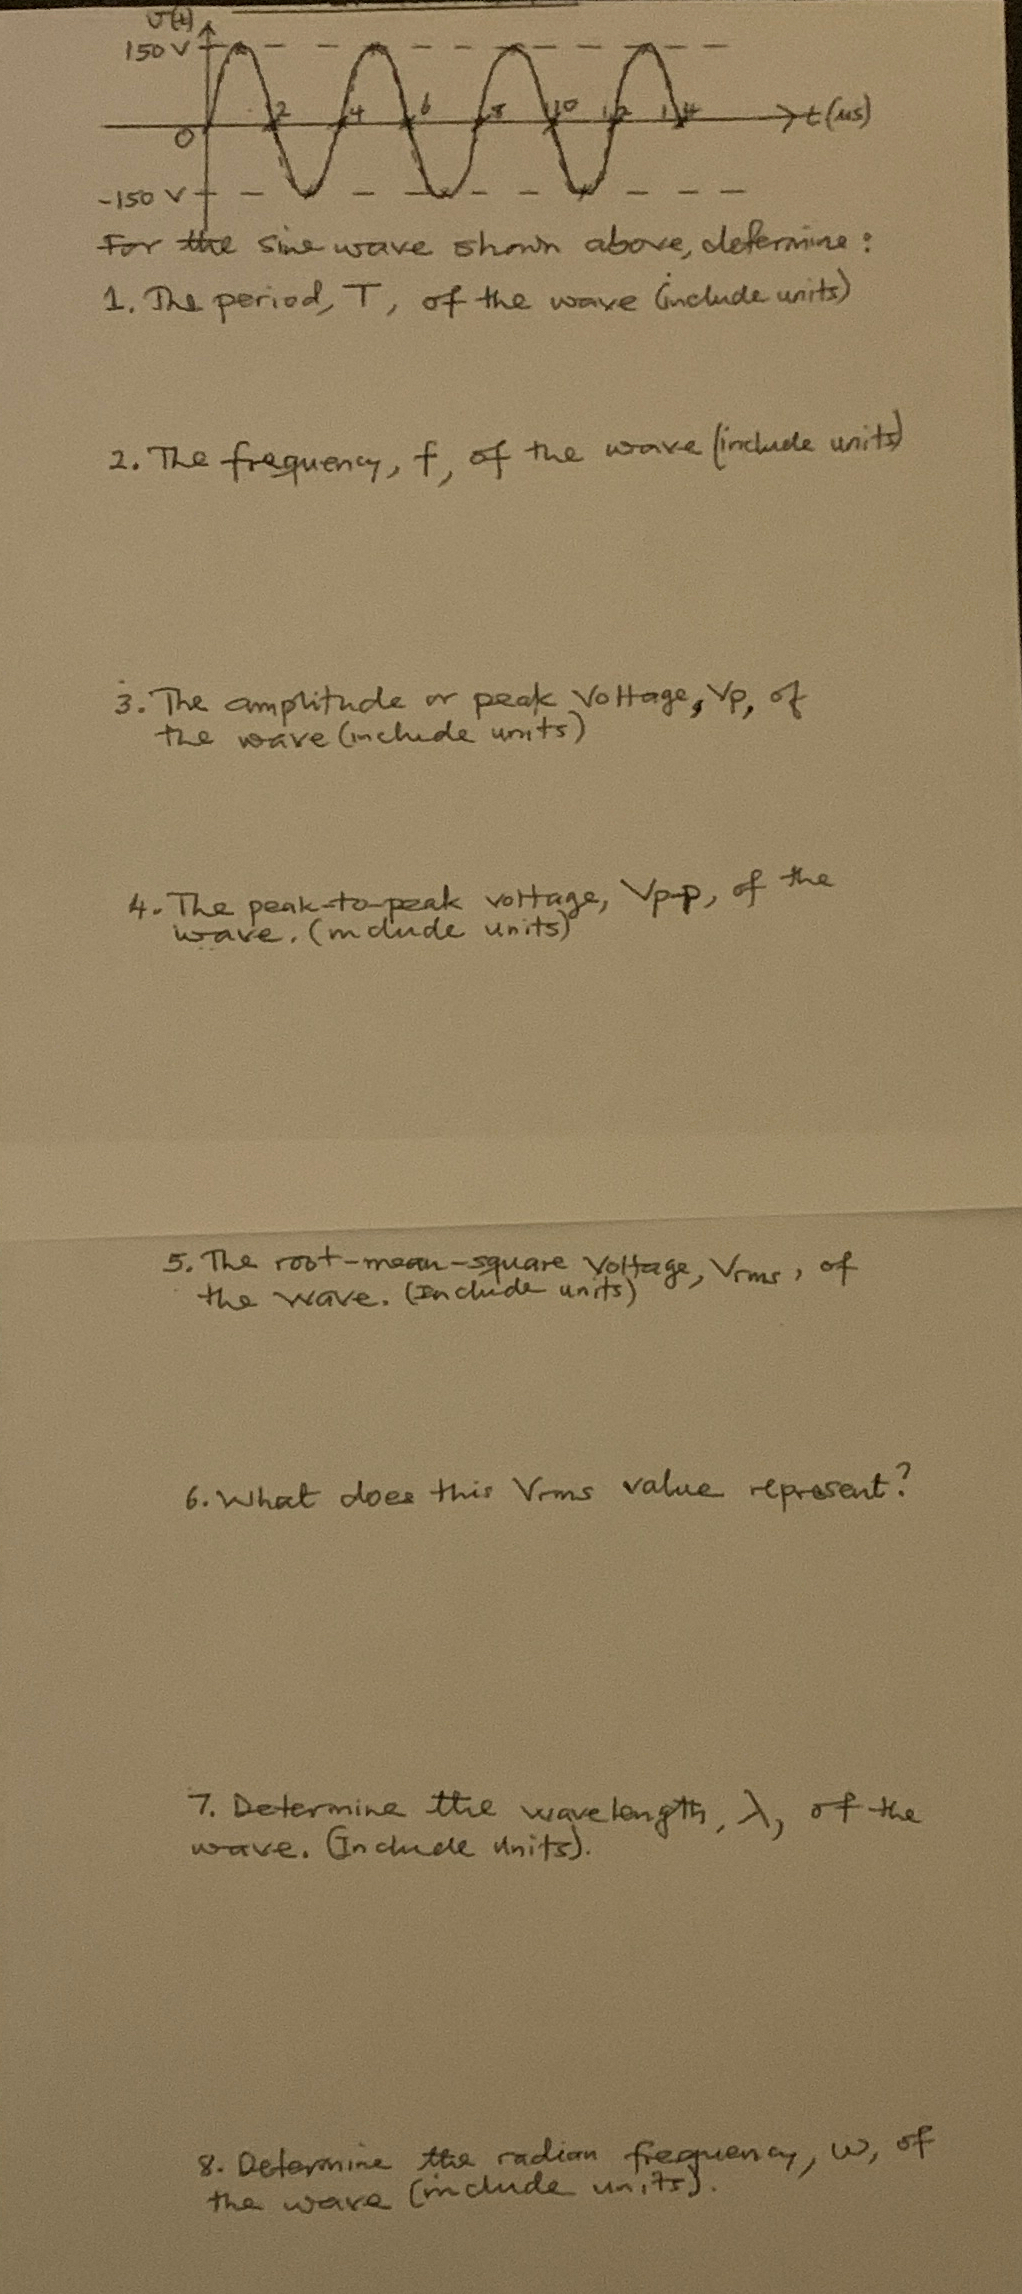 v(t)
150 V
2 4 6 8 10 12 14
t (μs)
0
-150 V
For the sine wave shown above, determine:
1. The period, T, of the wave (include units)
2. The frequency, f, of the wave (include units)
3. The amplitude or peak voltage, Vp, of
the wave (include units)
4. The peak-to-peak voltage, Vp-p, of the
wave. (include units)
5. The root-mean-square voltage, Vrms, of
the wave. (Include units)
6. What does this Vrms value represent?
7. Determine the wavelength, λ, of the
wave. (Include Units).
8. Determine the radian frequency, ω, of
the wave (include units).